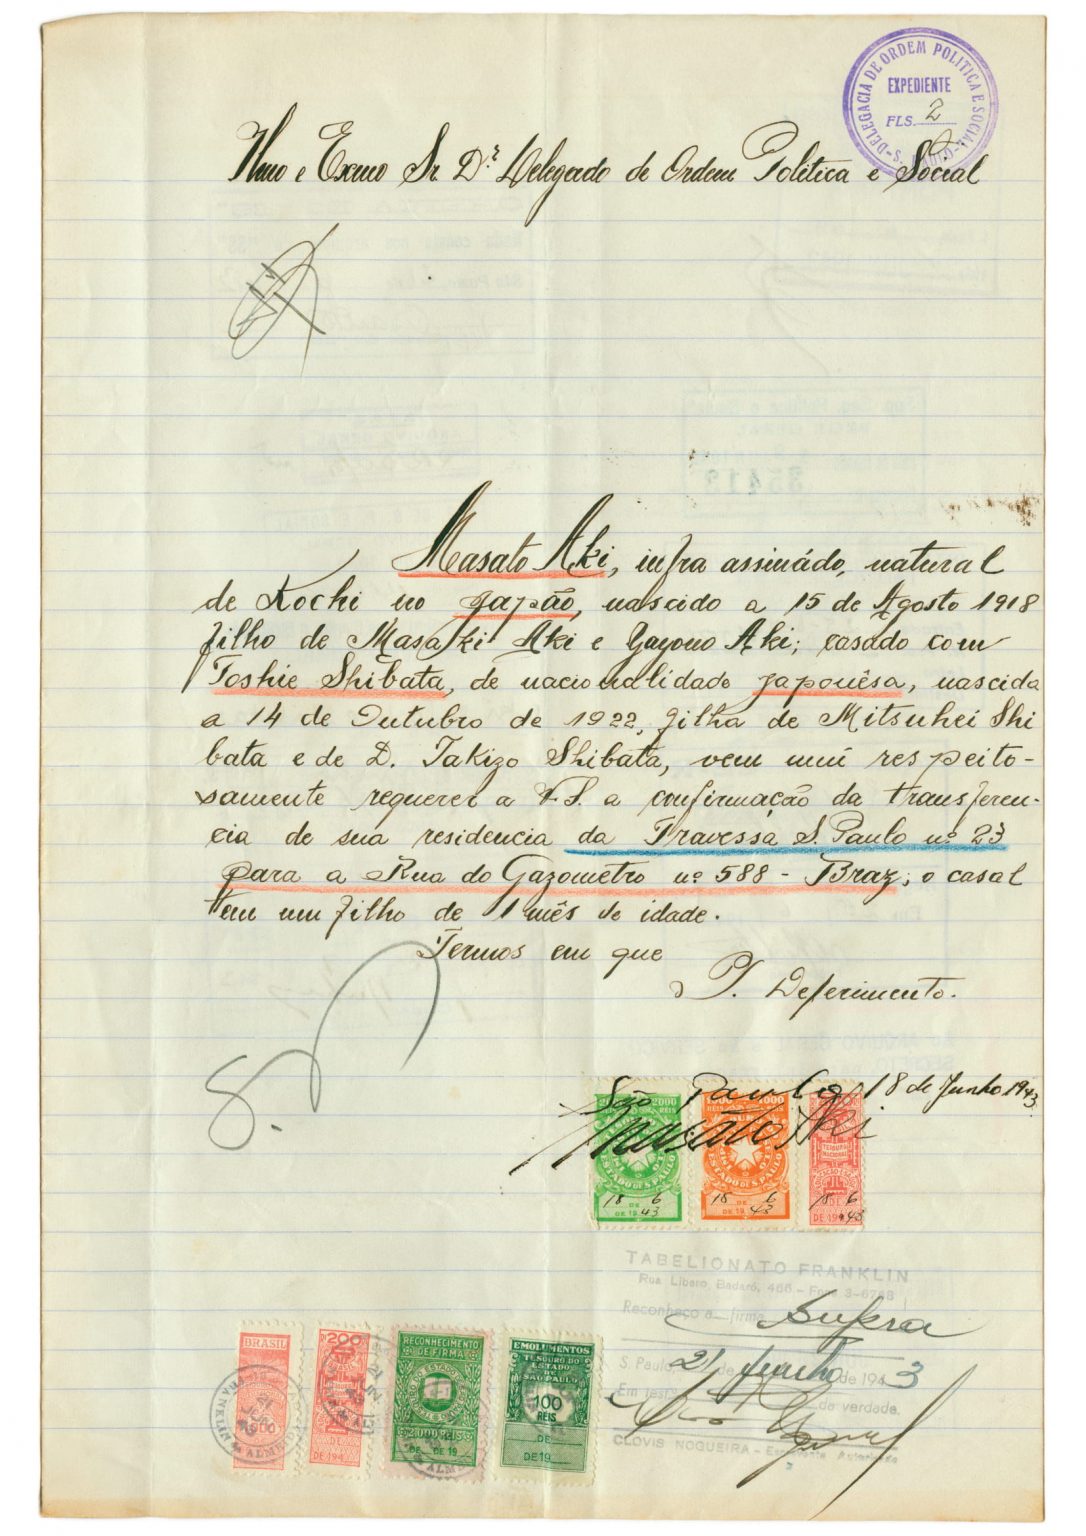 DELEGACIA DE ORDEM POLITICA E SOCIAL - S. PAULO -
EXPEDIENTE
FLS. 2
Illmo e Exmo Sr Dr. Delegado de Ordem Politica e Social
Masato Aki, infra assinádo, natural
de Kochi no Japão, nascido a 15 de Agosto 1918
filho de Masaki Aki e Yayono Aki; casado com
Toshie Shibata, de nacionalidade japonêsa, nascida
a 14 de Outubro de 1922, filha de Mitsuhei Shi
bata e de D. Takizo Shibata, vem mui respeito-
samente requerer a V.S. a confirmação da transferen-
cia de sua residencia da Travessa S. Paulo nº 23
para a Rua do Gazometro nº 588 - Braz; o casal
tem um filho de 1 mês de idade.
Termos em que
P. Deferimento.
8.
São Paulo, 18 de Junho 1943.
Masato Aki
2000 2000
REIS REIS
ESTADO DE S. PAULO
ESTADO DE S. PAULO
TESOURO NACIONAL
18 6
DE
DE 19 43
18 6
DE
DE 19 43
18 6
DE
DE 194 43
TABELIONATO FRANKLIN
Rua Libero Badaró, 466 - Fone 3-6788
Reconheço a firma supra
S. Paulo, 21 de Junho de 1943
Em test. da verdade.
CLOVIS NOGUEIRA - Escrevente Autorizado
BRASIL
200
DE 194
RECONHECIMENTO
DE FIRMA
2.000 REIS
DE DE 19
EMOLUMENTOS
TESOURO DO
ESTADO
DE
SÃO PAULO
100
REIS
DE
DE 19